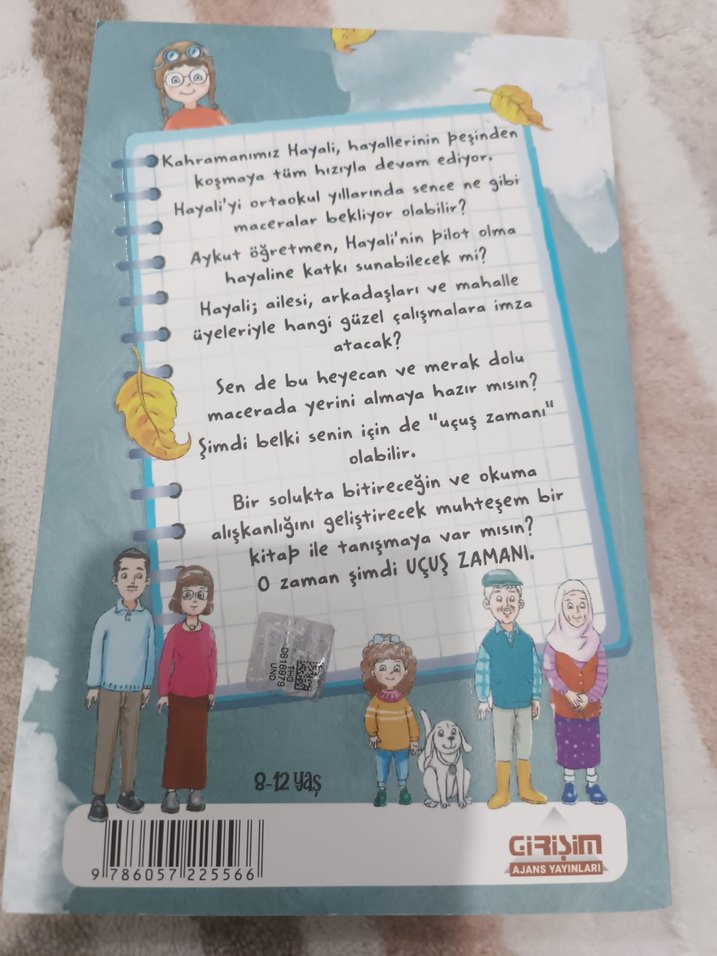 Kahramanımız Hayali, hayallerinin peşinden
koşmaya tüm hızıyla devam ediyor.
Hayali'yi ortaokul yıllarında sence ne gibi
maceralar bekliyor olabilir?
Aykut öğretmen, Hayali'nin pilot olma
hayaline katkı sunabilecek mi?
Hayali; ailesi, arkadaşları ve mahalle
üyeleriyle hangi güzel çalışmalara imza
atacak?
Sen de bu heyecan ve merak dolu
macerada yerini almaya hazır mısın?
Şimdi belki senin için de "uçuş zamanı"
olabilir.
Bir solukta bitireceğin ve okuma
alışkanlığını geliştirecek muhteşem bir
kitap ile tanışmaya var mısın?
O zaman şimdi UÇUŞ ZAMANI.
THG
0616979
UND
8-12 yaş
9 786057 225566
GİRİŞİM
AJANS YAYINLARI